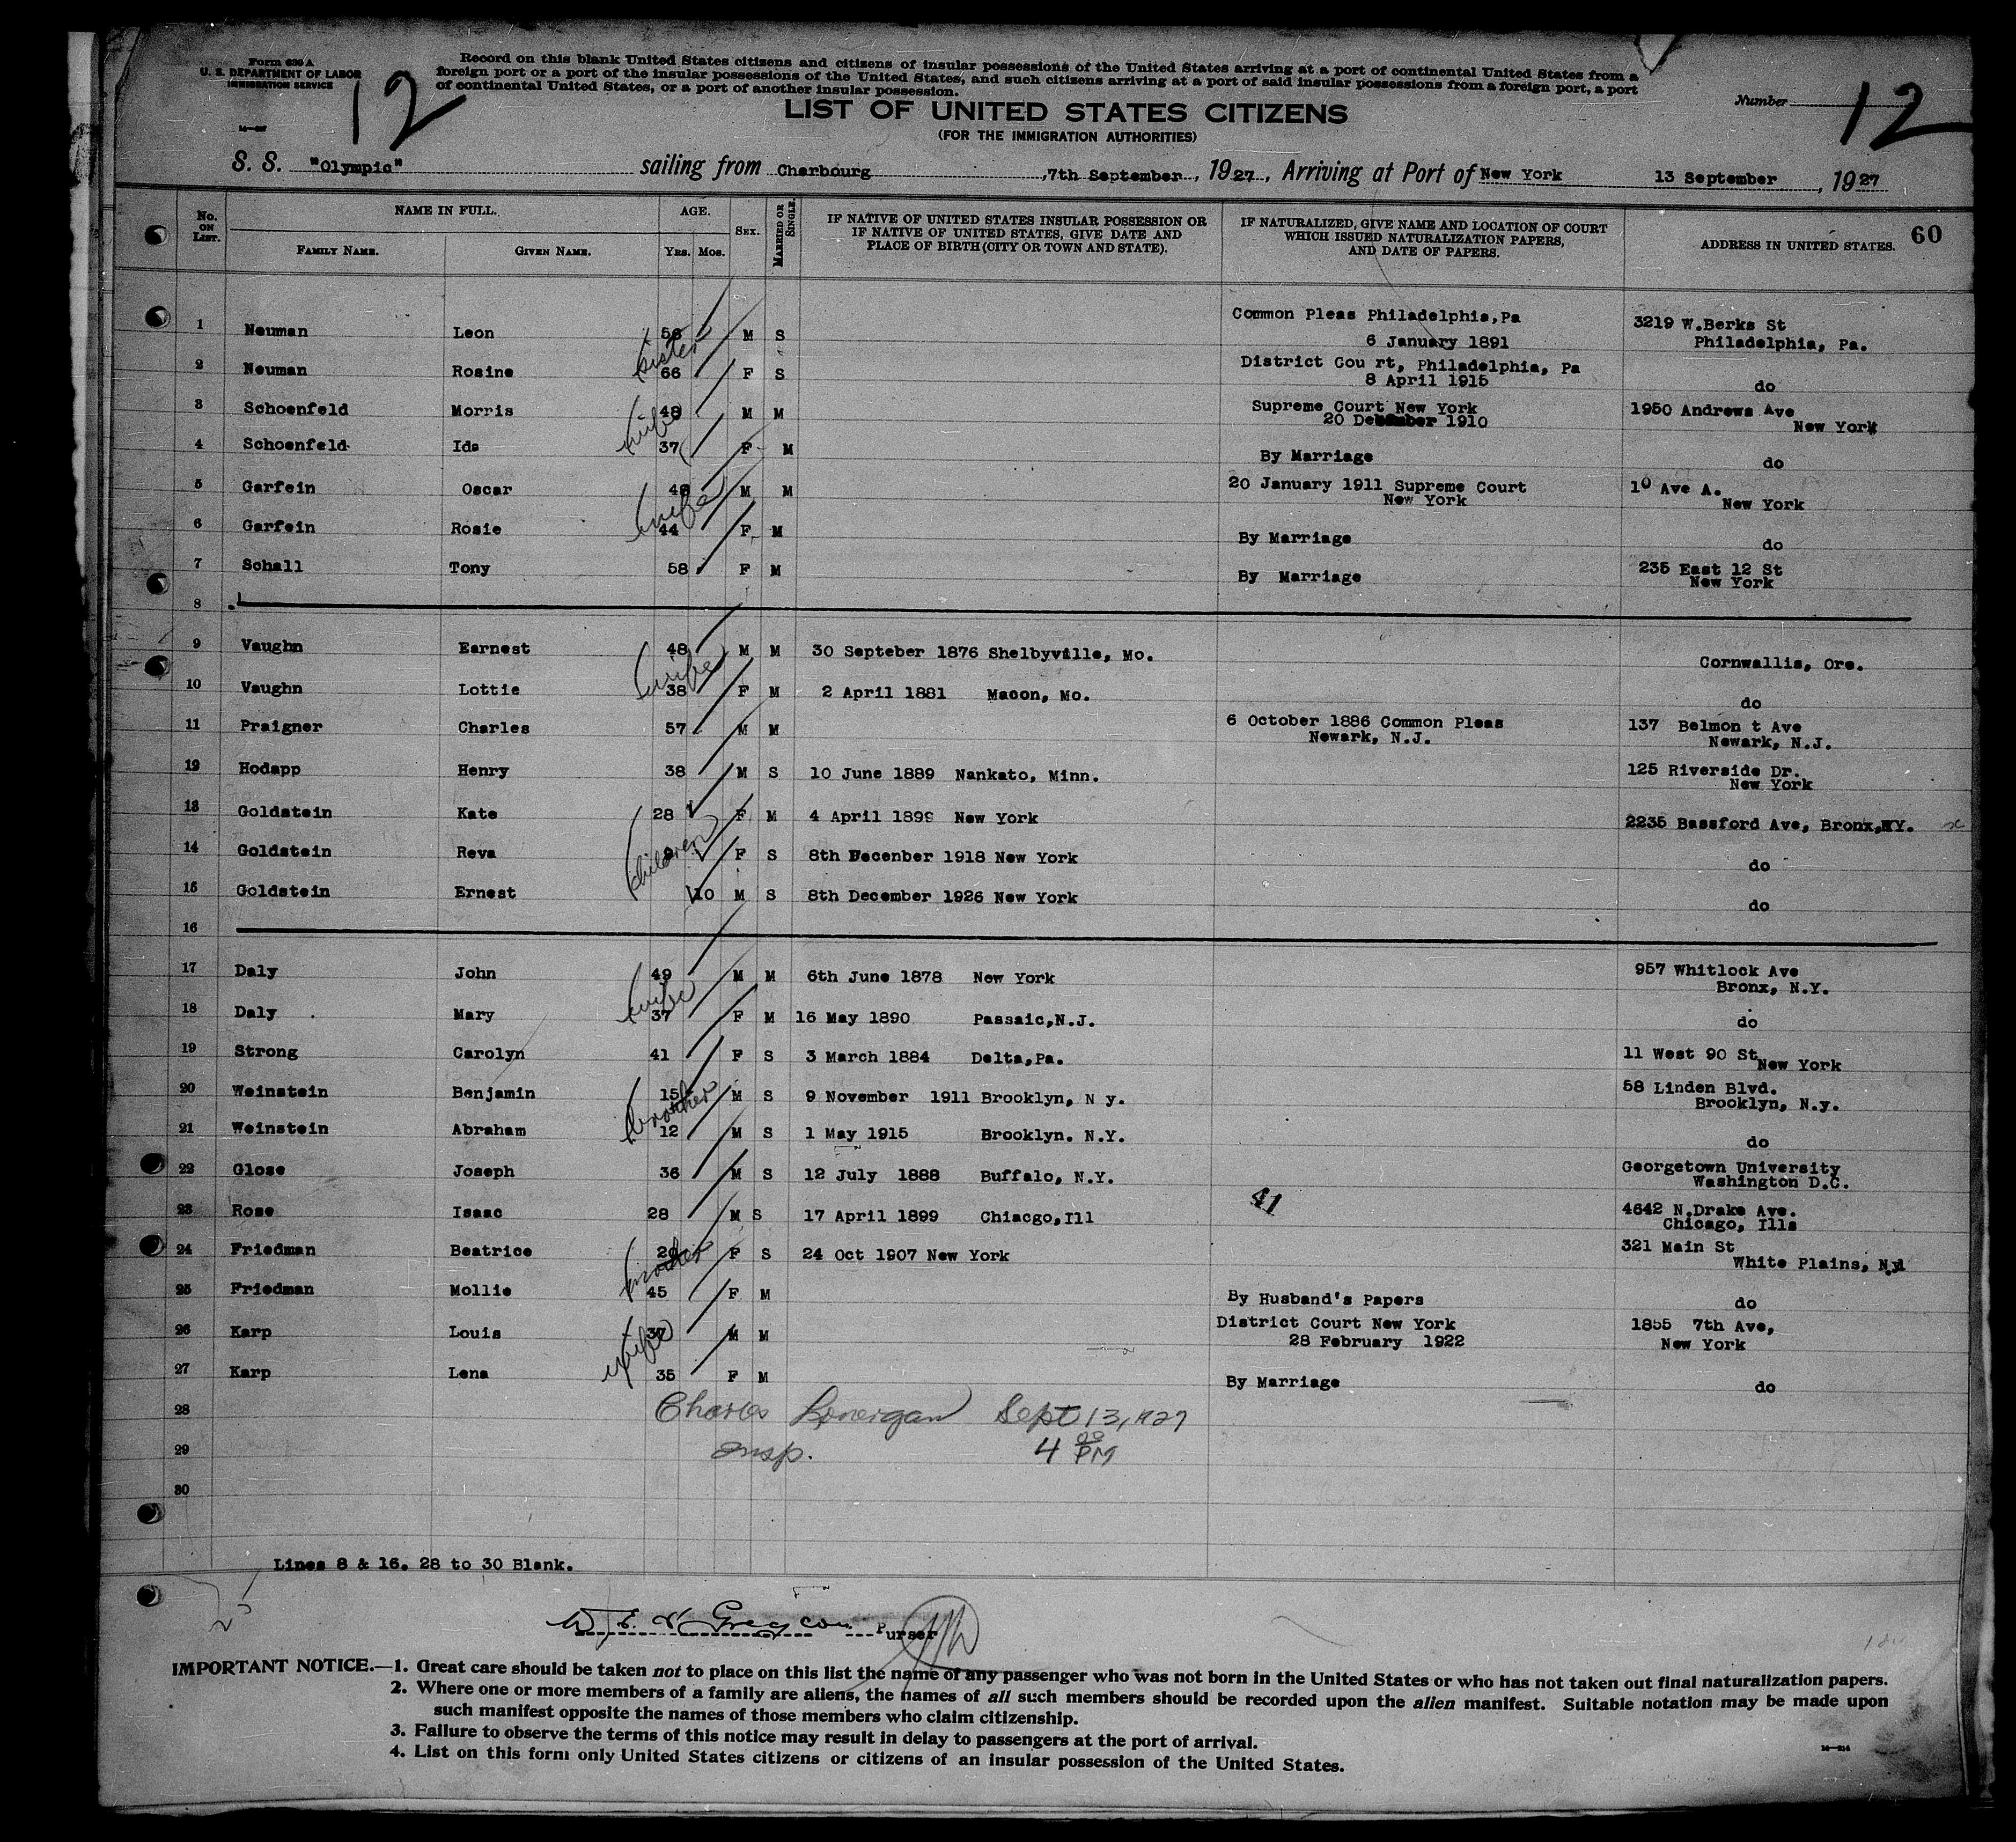 Form 630 A
U. S. DEPARTMENT OF LABOR
IMMIGRATION SERVICE
12
Record on this blank United States citizens and citizens of insular possessions of the United States arriving at a port of continental United States from a
foreign port or a port of the insular possessions of the United States, and such citizens arriving at a port of said insular possessions from a foreign port, a port
of continental United States, or a port of another insular possession.
Number 12
LIST OF UNITED STATES CITIZENS
(FOR THE IMMIGRATION AUTHORITIES)
S. S. "Olympic" sailing from Cherbourg ,7th September, 1927, Arriving at Port of New York 13 September, 1927
No. ON LIST. NAME IN FULL. AGE. SEX. MARRIED OR SINGLE. IF NATIVE OF UNITED STATES INSULAR POSSESSION OR IF NATIVE OF UNITED STATES, GIVE DATE AND PLACE OF BIRTH (CITY OR TOWN AND STATE). IF NATURALIZED, GIVE NAME AND LOCATION OF COURT WHICH ISSUED NATURALIZATION PAPERS, AND DATE OF PAPERS. ADDRESS IN UNITED STATES. 60
FAMILY NAME. GIVEN NAME. YRS. MOS.
1 Neuman Leon 56 M S Common Pleas Philadelphia,Pa 6 January 1891 3219 W.Berks St Philadelphia, Pa.
sister
2 Neuman Rosine 66 F S District Cou rt, Philadelphia, Pa 8 April 1915 do
3 Schoenfeld Morris 48 M M Supreme Court New York 20 December 1910 1950 Andrews Ave New York
wife
4 Schoenfeld Ida 37 F M By Marriage do
5 Garfein Oscar 48 M M 20 January 1911 Supreme Court New York 10 Ave A. New York
wife
6 Garfein Rosie 44 F M By Marriage do
7 Schall Tony 58 F M By Marriage 235 East 12 St New York
8
9 Vaughn Earnest 48 M M 30 Septeber 1876 Shelbyville, Mo. Cornwallis, Ore.
wife
10 Vaughn Lottie 38 F M 2 April 1881 Macon, Mo. do
11 Praigner Charles 57 M M 6 October 1886 Common Pleas Newark, N.J. 137 Belmon t Ave Newark, N.J.
12 Hodapp Henry 38 M S 10 June 1889 Nankato, Minn. 125 Riverside Dr. New York
13 Goldstein Kate 28 F M 4 April 1899 New York 2235 Bassford Ave, Bronx,NY. x
children
14 Goldstein Reva F S 8th Decenber 1918 New York do
15 Goldstein Ernest 10 M S 8th December 1926 New York do
16
17 Daly John 49 M M 6th June 1878 New York 957 Whitlock Ave Bronx, N.Y.
wife
18 Daly Mary 37 F M 16 May 1890 Passaic,N.J. do
19 Strong Carolyn 41 F S 3 March 1884 Delta,Pa. 11 West 90 St New York
20 Weinstein Benjamin 15 M S 9 November 1911 Brooklyn, N y. 58 Linden Blvd. Brooklyn, N.y.
brother
21 Weinstein Abraham 12 M S 1 May 1915 Brooklyn. N.Y. do
22 Glose Joseph 36 M S 12 July 1888 Buffalo, N.Y. Georgetown University Washington D.C.
23 Rose Isaac 28 M S 17 April 1899 Chiacgo,Ill 41 4642 N.Drake Ave. Chicago, Ills
24 Friedman Beatrice 20 F S 24 Oct 1907 New York 321 Main St White Plains, Ny
mother
25 Friedman Mollie 45 F M By Husband's Papers do
26 Karp Louis 37 M M District Court New York 28 February 1922 1855 7th Ave, New York
wife
27 Karp Lena 35 F M By Marriage do
28 Charles Sept 13, 1927
29 Insp. 4 00 PM
30
Lines 8 & 16. 28 to 30 Blank.
Purser
IMPORTANT NOTICE.—1. Great care should be taken not to place on this list the name of any passenger who was not born in the United States or who has not taken out final naturalization papers.
2. Where one or more members of a family are aliens, the names of all such members should be recorded upon the alien manifest. Suitable notation may be made upon
such manifest opposite the names of those members who claim citizenship.
3. Failure to observe the terms of this notice may result in delay to passengers at the port of arrival.
4. List on this form only United States citizens or citizens of an insular possession of the United States.